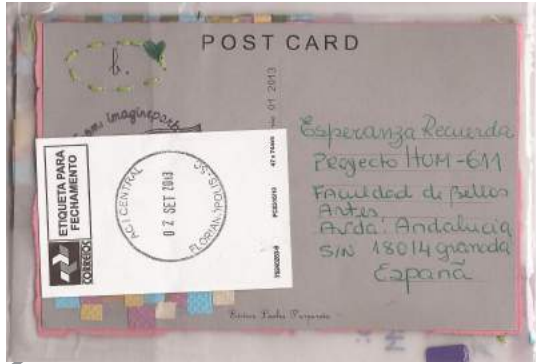 POST CARD
b.
01 2013
ETIQUETA PARA
FECHAMENTO
CORREIOS
AC CENTRAL
02 SET 2013
FLORIANÓPOLIS-SC
Esperanza Recuerda
Proyecto HUM-611
Facultad de Bellos
Artes,
Avda: Andalucia
S/N 18014 granada
España